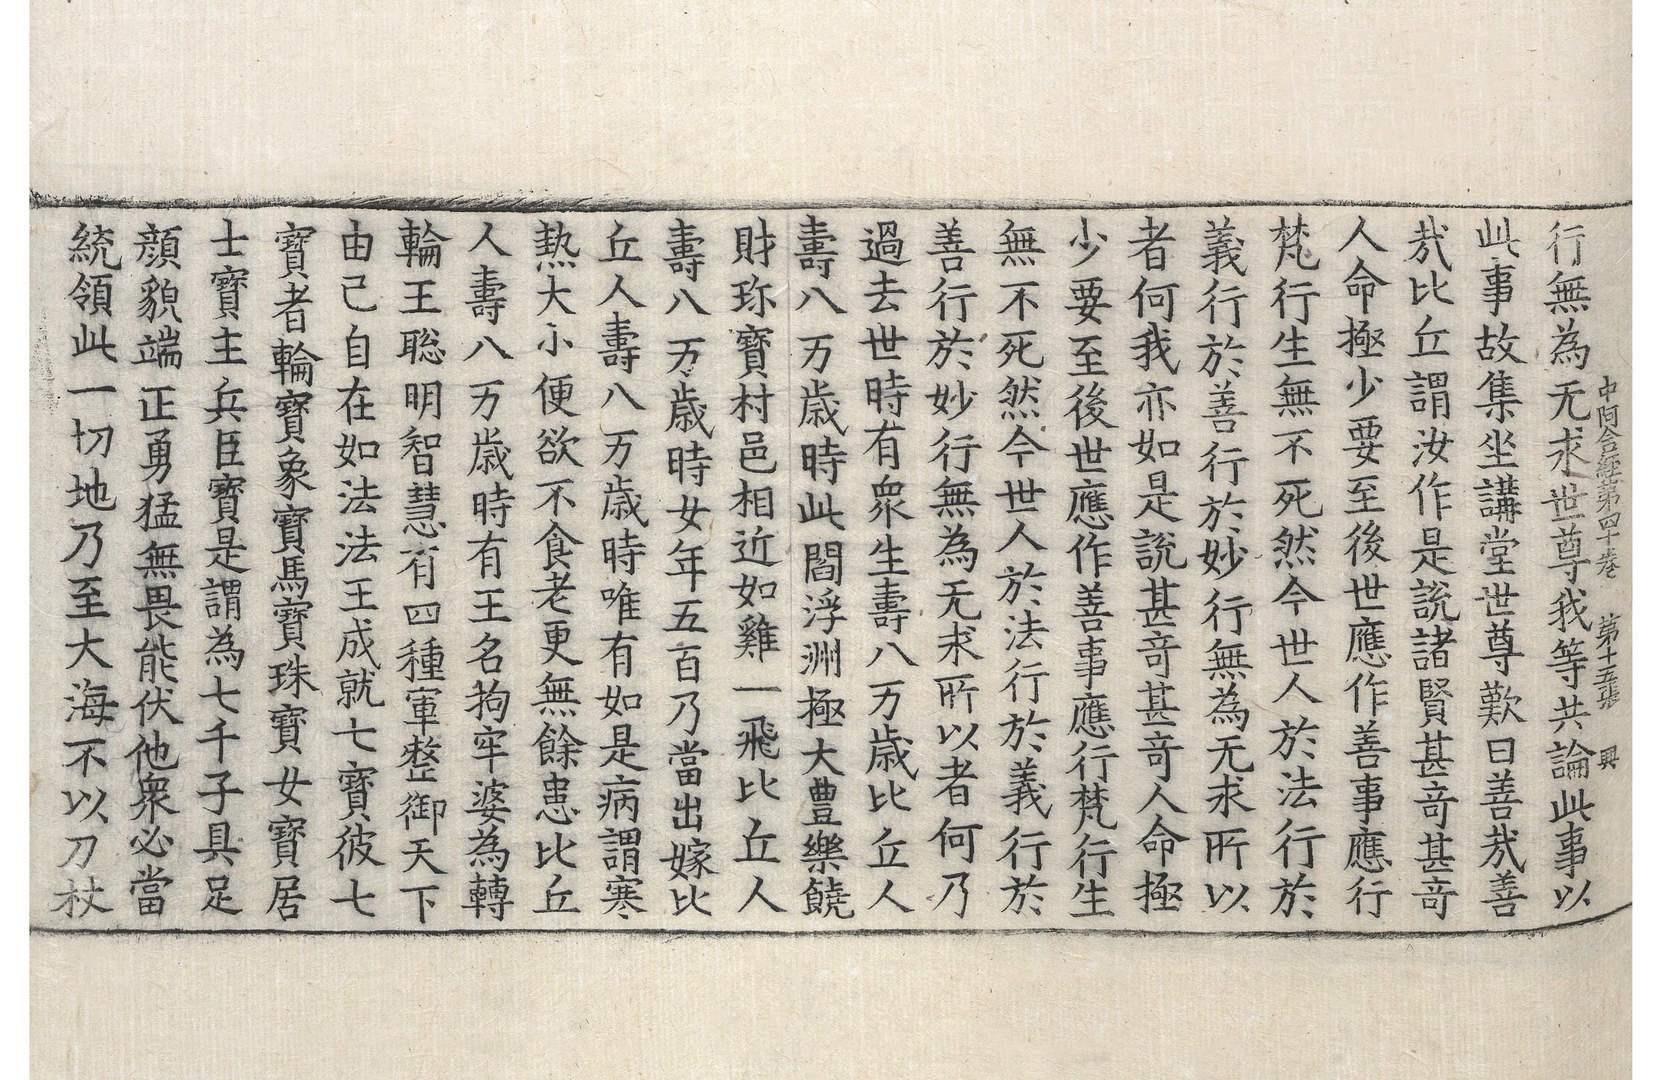 中阿含經第四十卷　第十五張　興
行無為无求世尊我等共論此事以
此事故集坐講堂世尊歎曰善㦲善
㦲比丘謂汝作是説諸賢甚竒甚竒
人命極少要至後世應作善事應行
梵行生無不死然今世人於法行於
義行於善行於妙行無為无求所以
者何我亦如是説甚竒甚竒人命極
少要至後世應作善事應行梵行生
無不死然今世人於法行於義行於
善行於妙行無為无求所以者何乃
過去世時有衆生壽八万歳比丘人
壽八万歳時此閻浮洲極大豊樂饒
財珎寶村邑相近如雞一飛比丘人
壽八万歳時女年五百乃當出嫁比
丘人壽八万歳時唯有如是病謂寒
熱大小便欲不食老更無餘患比丘
人壽八万歳時有王名拘牢婆為轉
輪王聡明智慧有四種軍整御天下
由己自在如法法王成就七寶彼七
寶者輪寶象寶馬寶珠寶女寶居
士寶主兵臣寶是謂為七千子具足
顔貌端正勇猛無畏能伏他衆必當
統領此一切地乃至大海不以刀杖